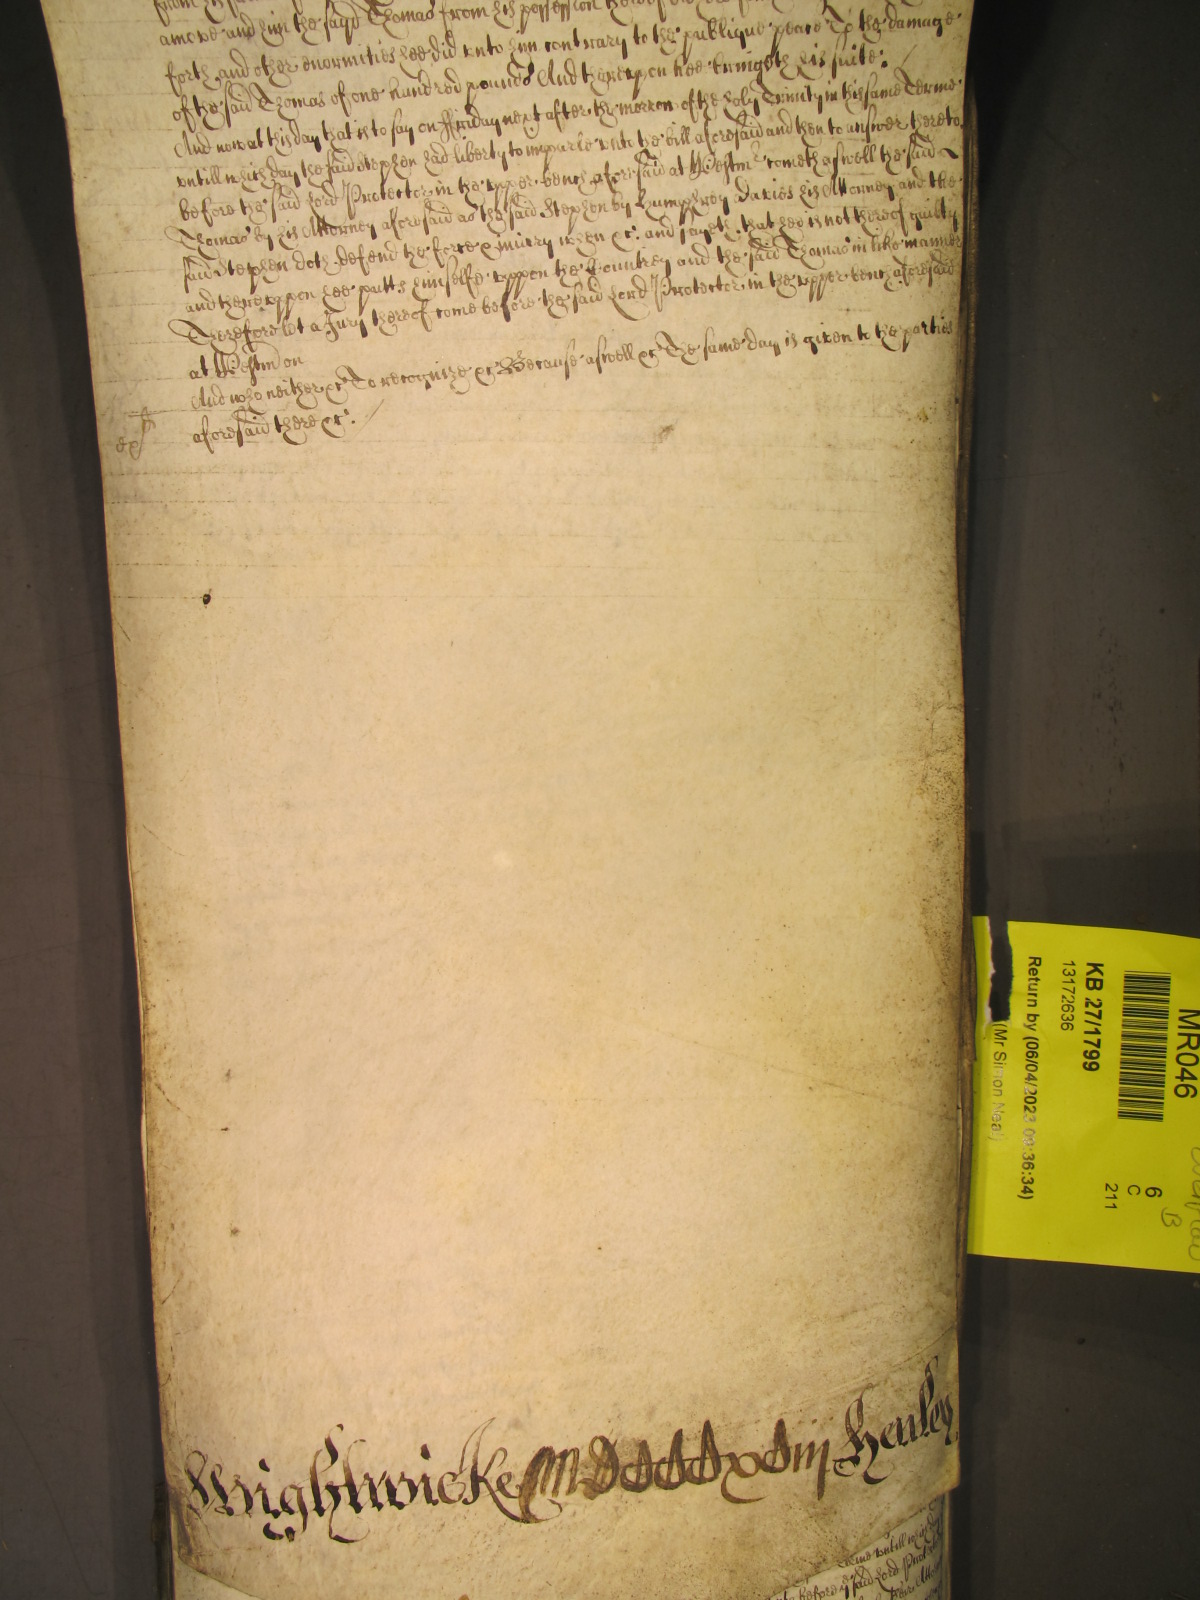 amove and him the sayd Thomas from his possession
forth and other enormities hee did unto him contrary to the publique peace To the damage
of the said Thomas of one hundred pounds And thereupon hee bringeth his suite.
And now at this day that is to say on Ffriday next after the morrow of the Holy Trinity in this same Terme
untill which day the said Stephen had liberty to imparle unto the bill aforesaid and then to answer thereto
before the said Lord Protector in the upper bench aforesaid at Westmr cometh aswell the said
Thomas by his Attorney aforesaid as the said Stephen by Humphrey Davies his Attorney and the
said Stephen doth defend the force & iniury when &c. and sayeth that hee is not thereof guilty
and thereuppon hee putts himselfe uppon the Countrey and the said Thomas in like manner
Therefore let a Jury thereof come before the said Lord Protector in the upper bench aforesaid
at Westm on
And who neither &c To recognize &c Because aswell &c The same day is given to the parties
aforesaid there &c.
Wrightwicke MDCCCxviij Henley
MR046
6
C
211
B
KB 27/1799
13172636
Return by (06/04/2023 09:36:34)
(Mr Simon Neal)
before ye said Lord